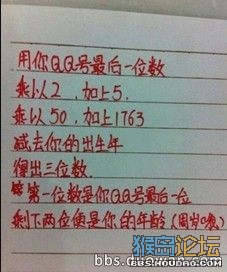 用你QQ号最后一位数
乘以2，加上5.
乘以50，加上1763
减去你的出生年
得出三位数.
第一位数是你QQ号最后一位
剩下两位便是你的年龄（周岁
猴岛论坛
BBS.HOUDAO.COM
bbs.duowan.com